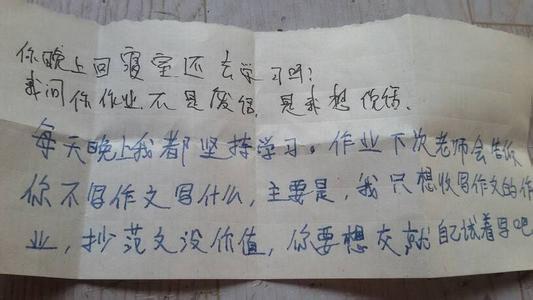 你晚上回寝室还去学习吗?
我问你作业不是废话,是我想你话,
每天晚上我都坚持学习。作业下次老师会告诉
你不写作文写什么,主要是,我只想收写作文的作
业,抄范文没价值,你要想交就自己试着写吧